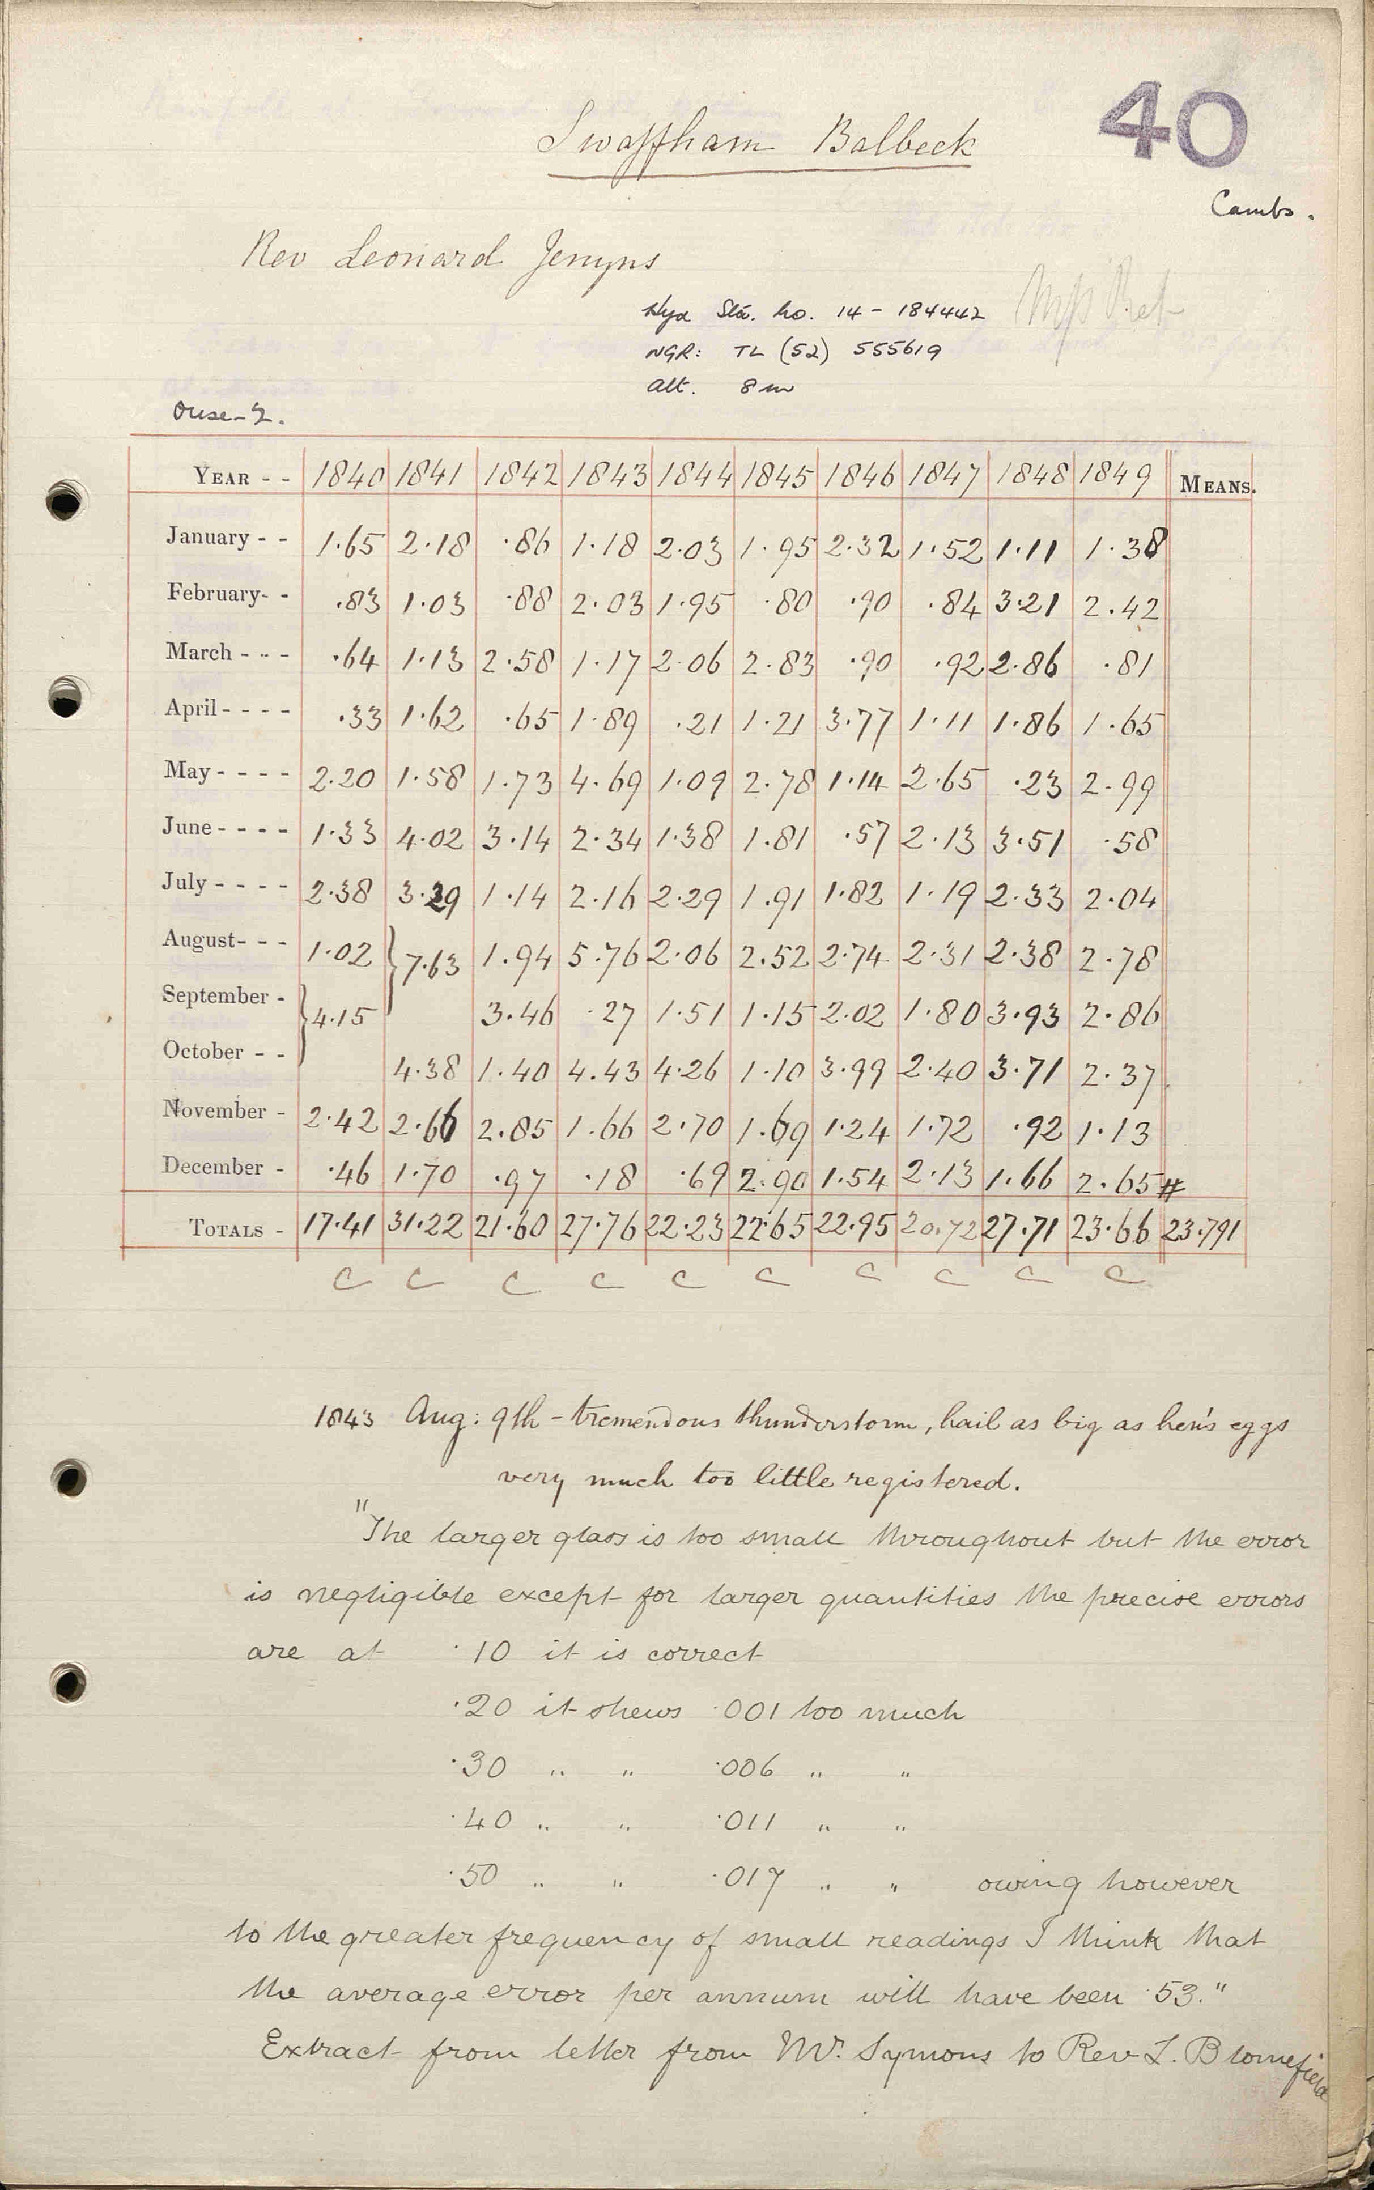 40
Swaffham Bolbeck
Cambs.
Rev Leonard Jenyns
Hyd Sta. No. 14 - 184442
NGR: TL (52) 555619
Alt. 8m
Ouse-2.
YEAR - - 1840 1841 1842 1843 1844 1845 1846 1847 1848 1849 MEANS.
January - - 1.65 2.18 .86 1.18 2.03 1.95 2.32 1.52 1.11 1.38
February- - .83 1.03 .88 2.03 1.95 .80 .90 .84 3.21 2.42
March - - - .64 1.13 2.58 1.17 2.06 2.83 .90 .92 2.86 .81
April - - - - .33 1.62 .65 1.89 .21 1.21 3.77 1.11 1.86 1.65
May - - - - 2.20 1.58 1.73 4.69 1.09 2.78 1.14 2.65 .23 2.99
June - - - - 1.33 4.02 3.14 2.34 1.38 1.81 .57 2.13 3.51 .58
July - - - - 2.38 3.29 1.14 2.16 2.29 1.91 1.82 1.19 2.33 2.04
August- - - 1.02 } 7.63 1.94 5.76 2.06 2.52 2.74 2.31 2.38 2.78
September - } 4.15 3.46 .27 1.51 1.15 2.02 1.80 3.93 2.86
October - - 4.38 1.40 4.43 4.26 1.10 3.99 2.40 3.71 2.37
November - 2.42 2.66 2.85 1.66 2.70 1.69 1.24 1.72 .92 1.13
December - .46 1.70 .97 .18 .69 2.90 1.54 2.13 1.66 2.65 #
TOTALS - 17.41 31.22 21.60 27.76 22.23 22.65 22.95 20.72 27.71 23.66 23.791
C C C C C C C C C C
1843 Aug: 9th - tremendous thunderstorm, hail as big as hen's eggs
very much too little registered.
"The larger glass is too small throughout but the error
is negligible except for larger quantities the precise errors
are at .10 it is correct
.20 it shews .001 too much
.30 " " .006 " "
.40 " " .011 " "
.50 " " .017 " " owing however
to the greater frequency of small readings I think that
the average error per annum will have been .53."
Extract from letter from Mr. Symons to Rev L. Blomefield